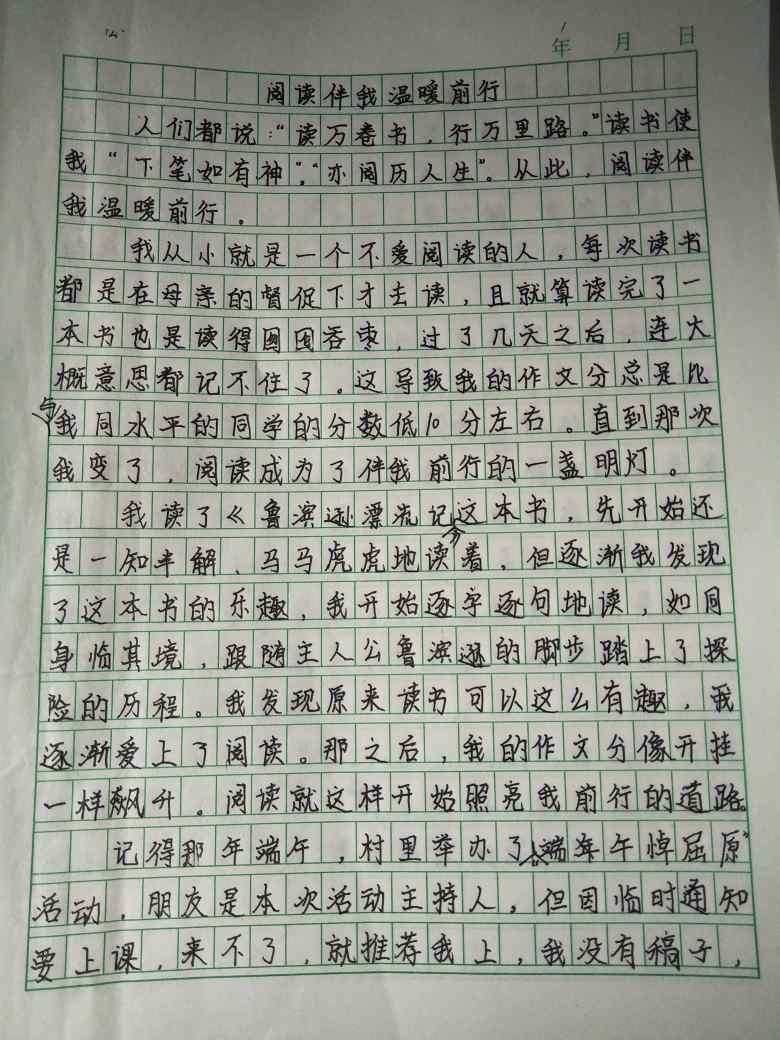 年 月 日
阅读伴我温暖前行
人们都说：“读万卷书，行万里路。”读书使
我“下笔如有神”，“亦阅历人生”。从此，阅读伴
我温暖前行。
我从小就是一个不爱阅读的人，每次读书
都是在母亲的督促下才去读，且就算读完了一
本书也是读得囫囵吞枣，过了几天之后，连大
概意思都记不住了。这导致我的作文分总是比
与我同水平的同学的分数低10分左右。直到那次
我变了，阅读成为了伴我前行的一盏明灯。
我读了《鲁滨逊漂流记》这本书，先开始还
是一知半解、马马虎虎地读着，但逐渐我发现
了这本书的乐趣，我开始逐字逐句地读，如同
身临其境，跟随主人公鲁滨逊的脚步踏上了探
险的历程。我发现原来读书可以这么有趣，我
逐渐爱上了阅读。那之后，我的作文分像开挂
一样飙升。阅读就这样开始照亮我前行的道路。
记得那年端午，村里举办了“端午悼屈原”
活动，朋友是本次活动主持人，但因临时通知
要上课，来不了，就推荐我上，我没有稿子，